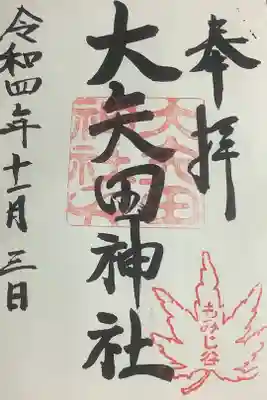 奉拝
大矢田神社
令和四年十一月三日
大矢田
神社
もみじ谷